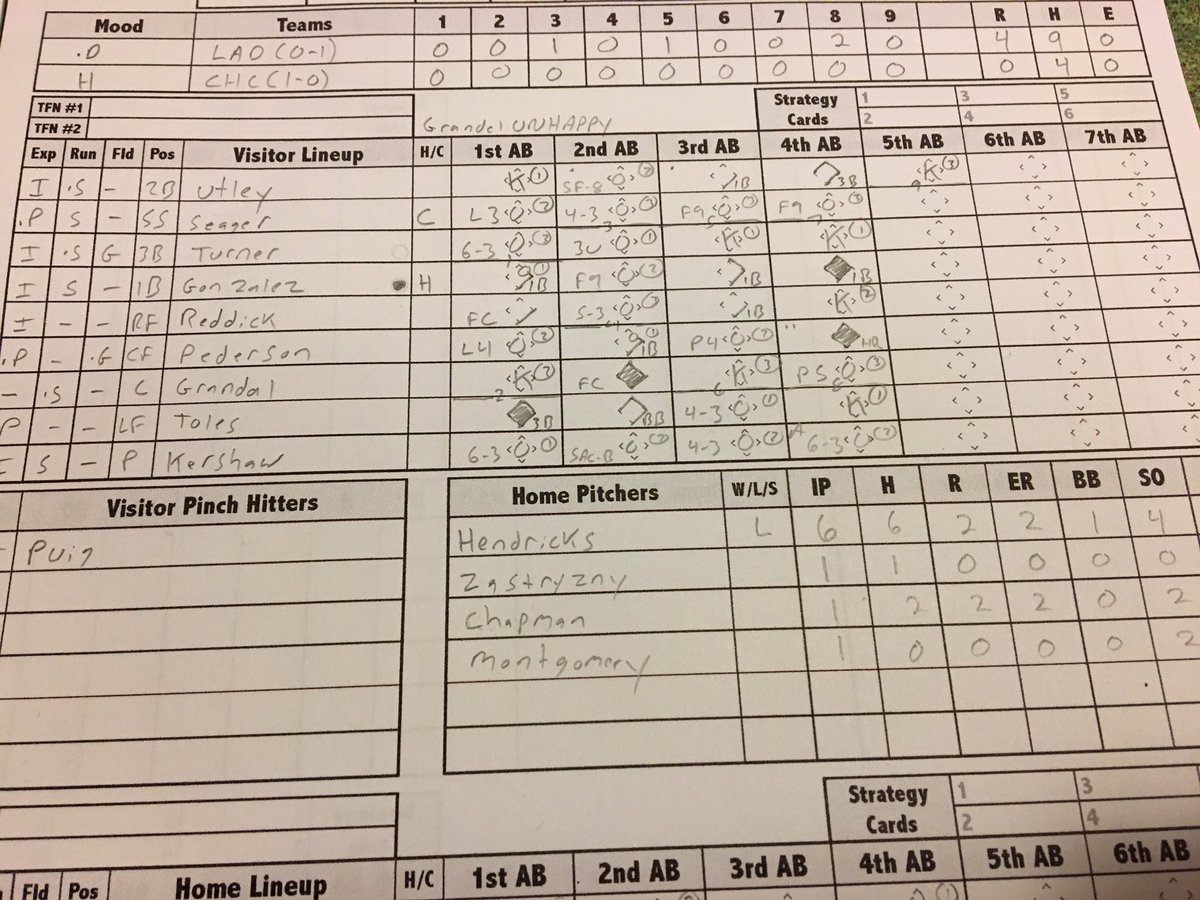 Mood Teams 1 2 3 4 5 6 7 8 9 R H E
.D LAD (0-1) 0 0 1 0 1 0 0 2 0 4 9 0
H CHC (1-0) 0 0 0 0 0 0 0 0 0 0 4 0
TFN #1
TFN #2
Grandal UNHAPPY
Strategy Cards 1 3 5
2 4 6
Exp Run Fld Pos Visitor Lineup H/C 1st AB 2nd AB 3rd AB 4th AB 5th AB 6th AB 7th AB
I .S - 2B Utley K 1 SF-8 2 1B 3B K 3
.P S - SS Seager C L3 2 4-3 3 F9 3 F9 3
I .S G 3B Turner 6-3 3 3U 1 K 1 K 1
I S - 1B Gonzalez H 1B F9 2 1B 1B
I - - RF Reddick FC S-3 3 1B K 2
.P - .G CF Pederson L4 2 1B P4 2 HR
- .S - C Grandal K 3 FC K 3 P5 3
P - - LF Toles 3B BB 4-3 1 K 1
I S - P Kershaw 6-3 1 SAC-B 4-3 2 6-3 2
Visitor Pinch Hitters
Puig
Home Pitchers W/L/S IP H R ER BB SO
Hendricks L 6 6 2 2 1 4
Zastryzny 1 1 0 0 0 0
Chapman 1 2 2 2 0 2
Montgomery 1 0 0 0 0 2
Strategy Cards 1 3
2 4
Fld Pos Home Lineup H/C 1st AB 2nd AB 3rd AB 4th AB 5th AB 6th AB